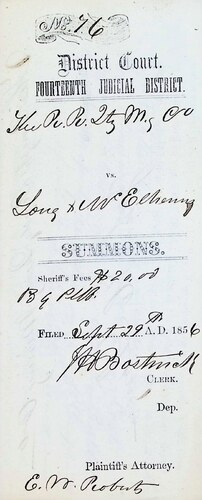 No. 76
District Court.
FOURTEENTH JUDICIAL DISTRICT.
The R. R. Qtz Mg Co
vs.
Long & McElhenny
SUMMONS.
Sheriff's Fees $20.00
By Plff.
FILED Sept 29th A. D. 1856
J H Bostwick
CLERK.
Dep.
Plaintiff's Attorney.
E. W. Roberts